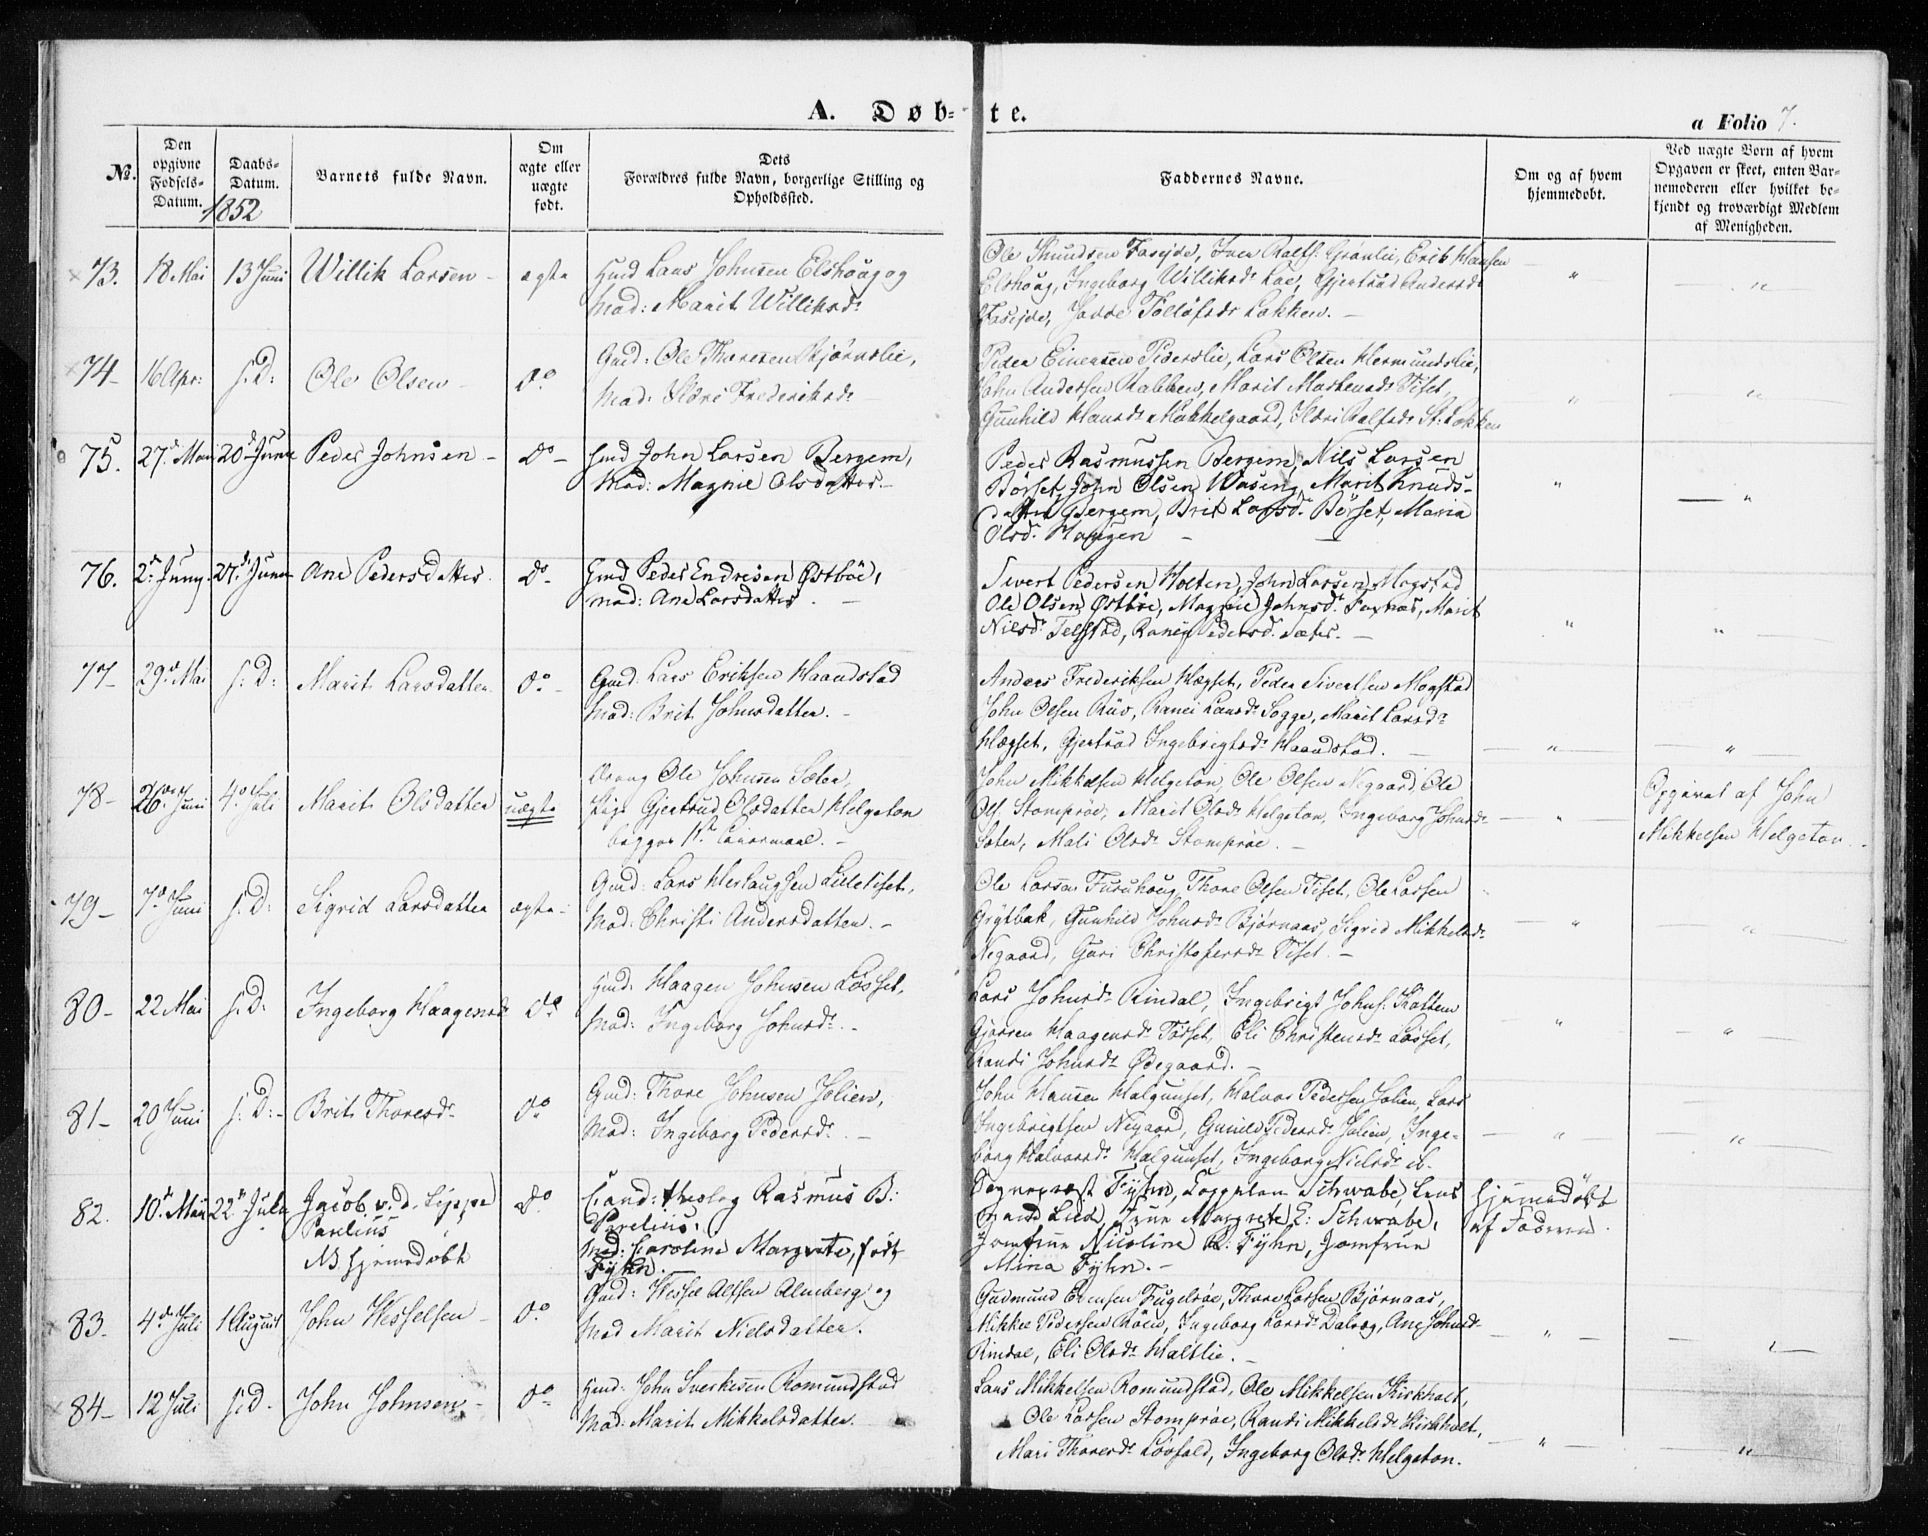 A. Døb-te.
a Folio 7.
No.
Den opgivne Fødsels-Datum.
Daabs-Datum.
1852
Barnets fulde Navn.
Om ægte eller uægte født.
Dets Forældres fulde Navn, borgerlige Stilling og Opholdssted.
Faddernes Navne.
Om og af hvem hjemmedøbt.
Ved uægte Børn af hvem Opgaven er skeet, enten Barnemoderen eller hvilket bekjendt og troværdigt Medlem af Menigheden.
73. 18 Mai 13 Juni Willik Larsen - ægte
Gmd Lars Johnsen Elshoug og
Mod: Marit Williksdr
Ole Knudsen Fasejde, Iver Rolfs. Grønlie, Erik Hansen
Elshoug, Ingeborg Williksdr Loe, Gjertrud Andersdr
Fasejde, Løkken. -
74- 16 Apr: s. D: Ole Olsen - do
Gmd: Ole Thoresen Bjørnslie,
Mod: Kari Frederiksdr
Peder Einersen Pederslie, Lars Olsen Hermundslie,
John Andersen Rabben, Marit Tiset,
Gunhild Hansdr Mikkelgaard, St: Løkken
75. 27. Mai 20 Juni Peder Johnsen - do -
Gmd John Larsen Bergem,
Mod: Magnil Olsdatter. -
Peder Rasmussen Bergem, Nils Larsen
Børset, John Olsen Wasing, Marit Knuds-
datter Bergem, Brit Larsd. Børset, Maria
Olsd. Haugen -
76. 2. Juny. 27. Juni Ane Pedersdatter. do -
Gmd Peder Endresen Østbøe,
mod: Ane Larsdatter. -
Sivert Pedersen Holten, John Larsen Mogstad
Ole Olsen Østbøe, Magnil Johnsd. Foxnæs, Marit
Nilsd. Telstad, Ranei Pedersd. Sæter. -
77- 29. Mai s: D: Marit Larsdatter. do -
Gmd. Lars Eriksen Haandstad
Mod: Brit Johnsdatter. -
Anders Frederiksen Hægset, Peder Sivertsen Mogstad
John Olsen Ruv, Ranei Larsdr Sogge, Marit Larsdr
Hægset, Gjertrud Ingebrigtsdr Haandstad. -
78- 26. Juni 4. Juli Marit Olsdatter uægte
Dreng Ole Johnsen Sæter,
Pige Gjertrud Olsdatter Helgeton
begges 1ste Leiermaal. -
John Mikkelsen Helgeton, Ole Olsen Negaard, Ole
Ols. Stomprøe, Marit Olsdr Helgeton, Ingeborg Johnsdr
Sæter, Mali Olsdr Stomprøe. -
Opgivet af John
Mikkelsen Helgeton.
79- 7. Juni s: D: Sigrid Larsdatter ægte
Gmd: Lars Herlaugsen Lilletiset,
Mod: Christi Andersdatter. -
Ole Larsen Furuhoug, Thore Olsen Tiset, Ole Larsen
Grytbak, Gunhild Johnsdr Bjørnaas, Sigrid Mikkelsdr
Negaard, Guri Christofersdr Tiset. -
80- 22 Mai s: D: Ingeborg Haagensdr do
Gmd: Haagen Johnsen Løsset,
Mod: Ingeborg Johnsdr. -
Lars Johnsdr Rindal, Ingebrigt Johns. Kattem
Gjøren Haagensdr Tørset, Eli Christensdr Løsset,
Randi Johnsdr Ødegaard. -
81- 20 Juni s: D: - Brit Thoresdr do
Gmd: Thore Johnsen Jolien,
Mod: Ingeborg Pedersdr. -
John Hansen Halgunset, Halvor Pedersen Jolien, Lars
Ingebrigtsen Negaard, Gunild Pedersdr Jolien, Inge-
borg Halvorsdr Halgunset, Ingeborg Nielsdr ib.
82. 10. Mai 22. Juli Jacob v. d. Lippe
Parelius
NB. Hjemedøbt do
Cand: theolog Rasmus B:
Parelius,
Mod: Caroline Margrete, født
Fyhn.
Sogneprest Fyhn, Cappelan Schwabe, Lens-
mand Lied, Frue Margrete E: Schwabe,
Jomfrue Nicoline R: Fyhn, Jomfrue
Mina Fyhn. -
Hjemedøbt
af Faderen.
83- 4. Juli 1 August John Wesselsen - do
Gmd: Wessel Alfsen Almberg og
Mod Marit Nielsdatter.
Gudmund Evensen Fugelsøe, Thore Larsen Bjørnaas,
Mikkel Pedersen Røen, Ingeborg Larsdr Dalseg, Ane Johnsdr
Rindal, Eli Olsdr Haltlie. -
84- 12 Juli s. D. John Johnsen - do
Gmd: John Sverkesen Romundstad
Mod: Marit Mikkelsdatter.
Lars Mikkelsen Romundstad, Ole Mikkelsen Kirkholt,
Ole Larsen Stomprøe, Randi Mikkelsdr Kirkholt,
Mari Thoresdr Løvfald, Ingeborg Olsdr Helgeton.